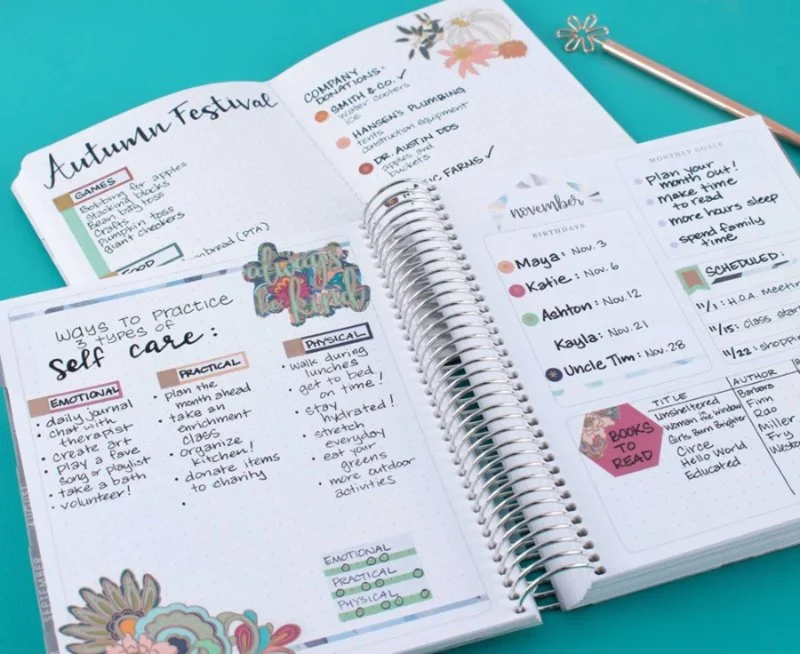 Autumn Festival
GAMES
Bobbing for apples
Stacking blocks
Bean bag toss
Crafts
Pumpkin toss
giant checkers
FOOD
bread (PTA)
COMPANY
DONATIONS:
SMITH & CO. ✓
water coolers
ice
HANSEN'S PLUMBING
tents
construction equipment
DR. AUSTIN DDS
apples and
buckets
FARMS ✓
always
be kind
WAYS TO PRACTICE
3 TYPES OF
Self care:
EMOTIONAL
• daily journal
• chat with
therapist
• create art
• play a fave
song or playlist
• take a bath
• volunteer!
PRACTICAL
• plan the
month ahead
• take an
enrichment
class
• organize
kitchen!
• donate items
to charity
•
PHYSICAL
• walk during
lunches
• get to bed
on time!
• stay
hydrated!
• stretch
everyday
• eat your
greens
• more outdoor
activities
•
EMOTIONAL
PRACTICAL
PHYSICAL
november
BIRTHDAYS
Maya: Nov. 3
Katie: Nov. 6
Ashton: Nov. 12
Kayla: Nov. 21
Uncle Tim: Nov. 28
MONTHLY GOALS
Plan your
month out!
Make time
to read
more hours sleep
spend family
time
SCHEDULED:
11/1: H.O.A. Meeti
11/15: class star
11/22: shoppi
BOOKS
TO
READ
TITLE
AUTHOR
Unsheltered
Barbara
Woman the Window
Finn
Girls Burn Brighter
Rao
Circe
Miller
Hello World
Fry
Educated
Westo